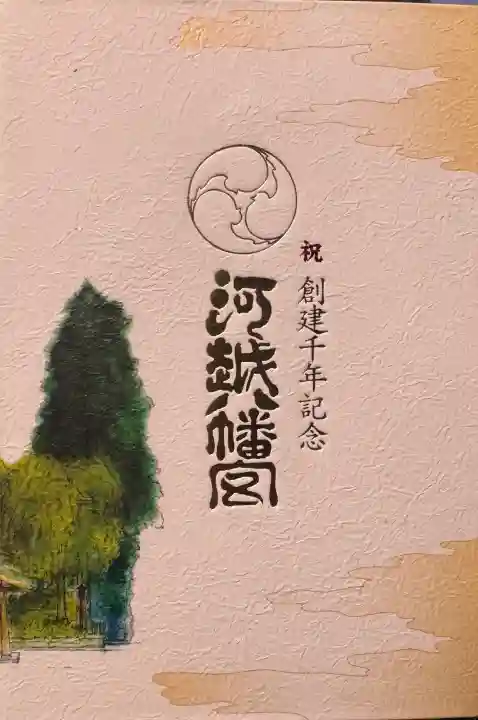 祝 創建千年記念
河越八幡宮